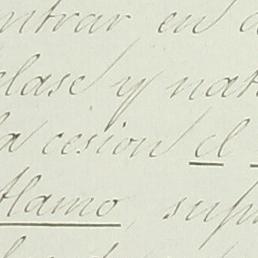 ntrar en
clase y nat
a cesion el
tlamo, sup